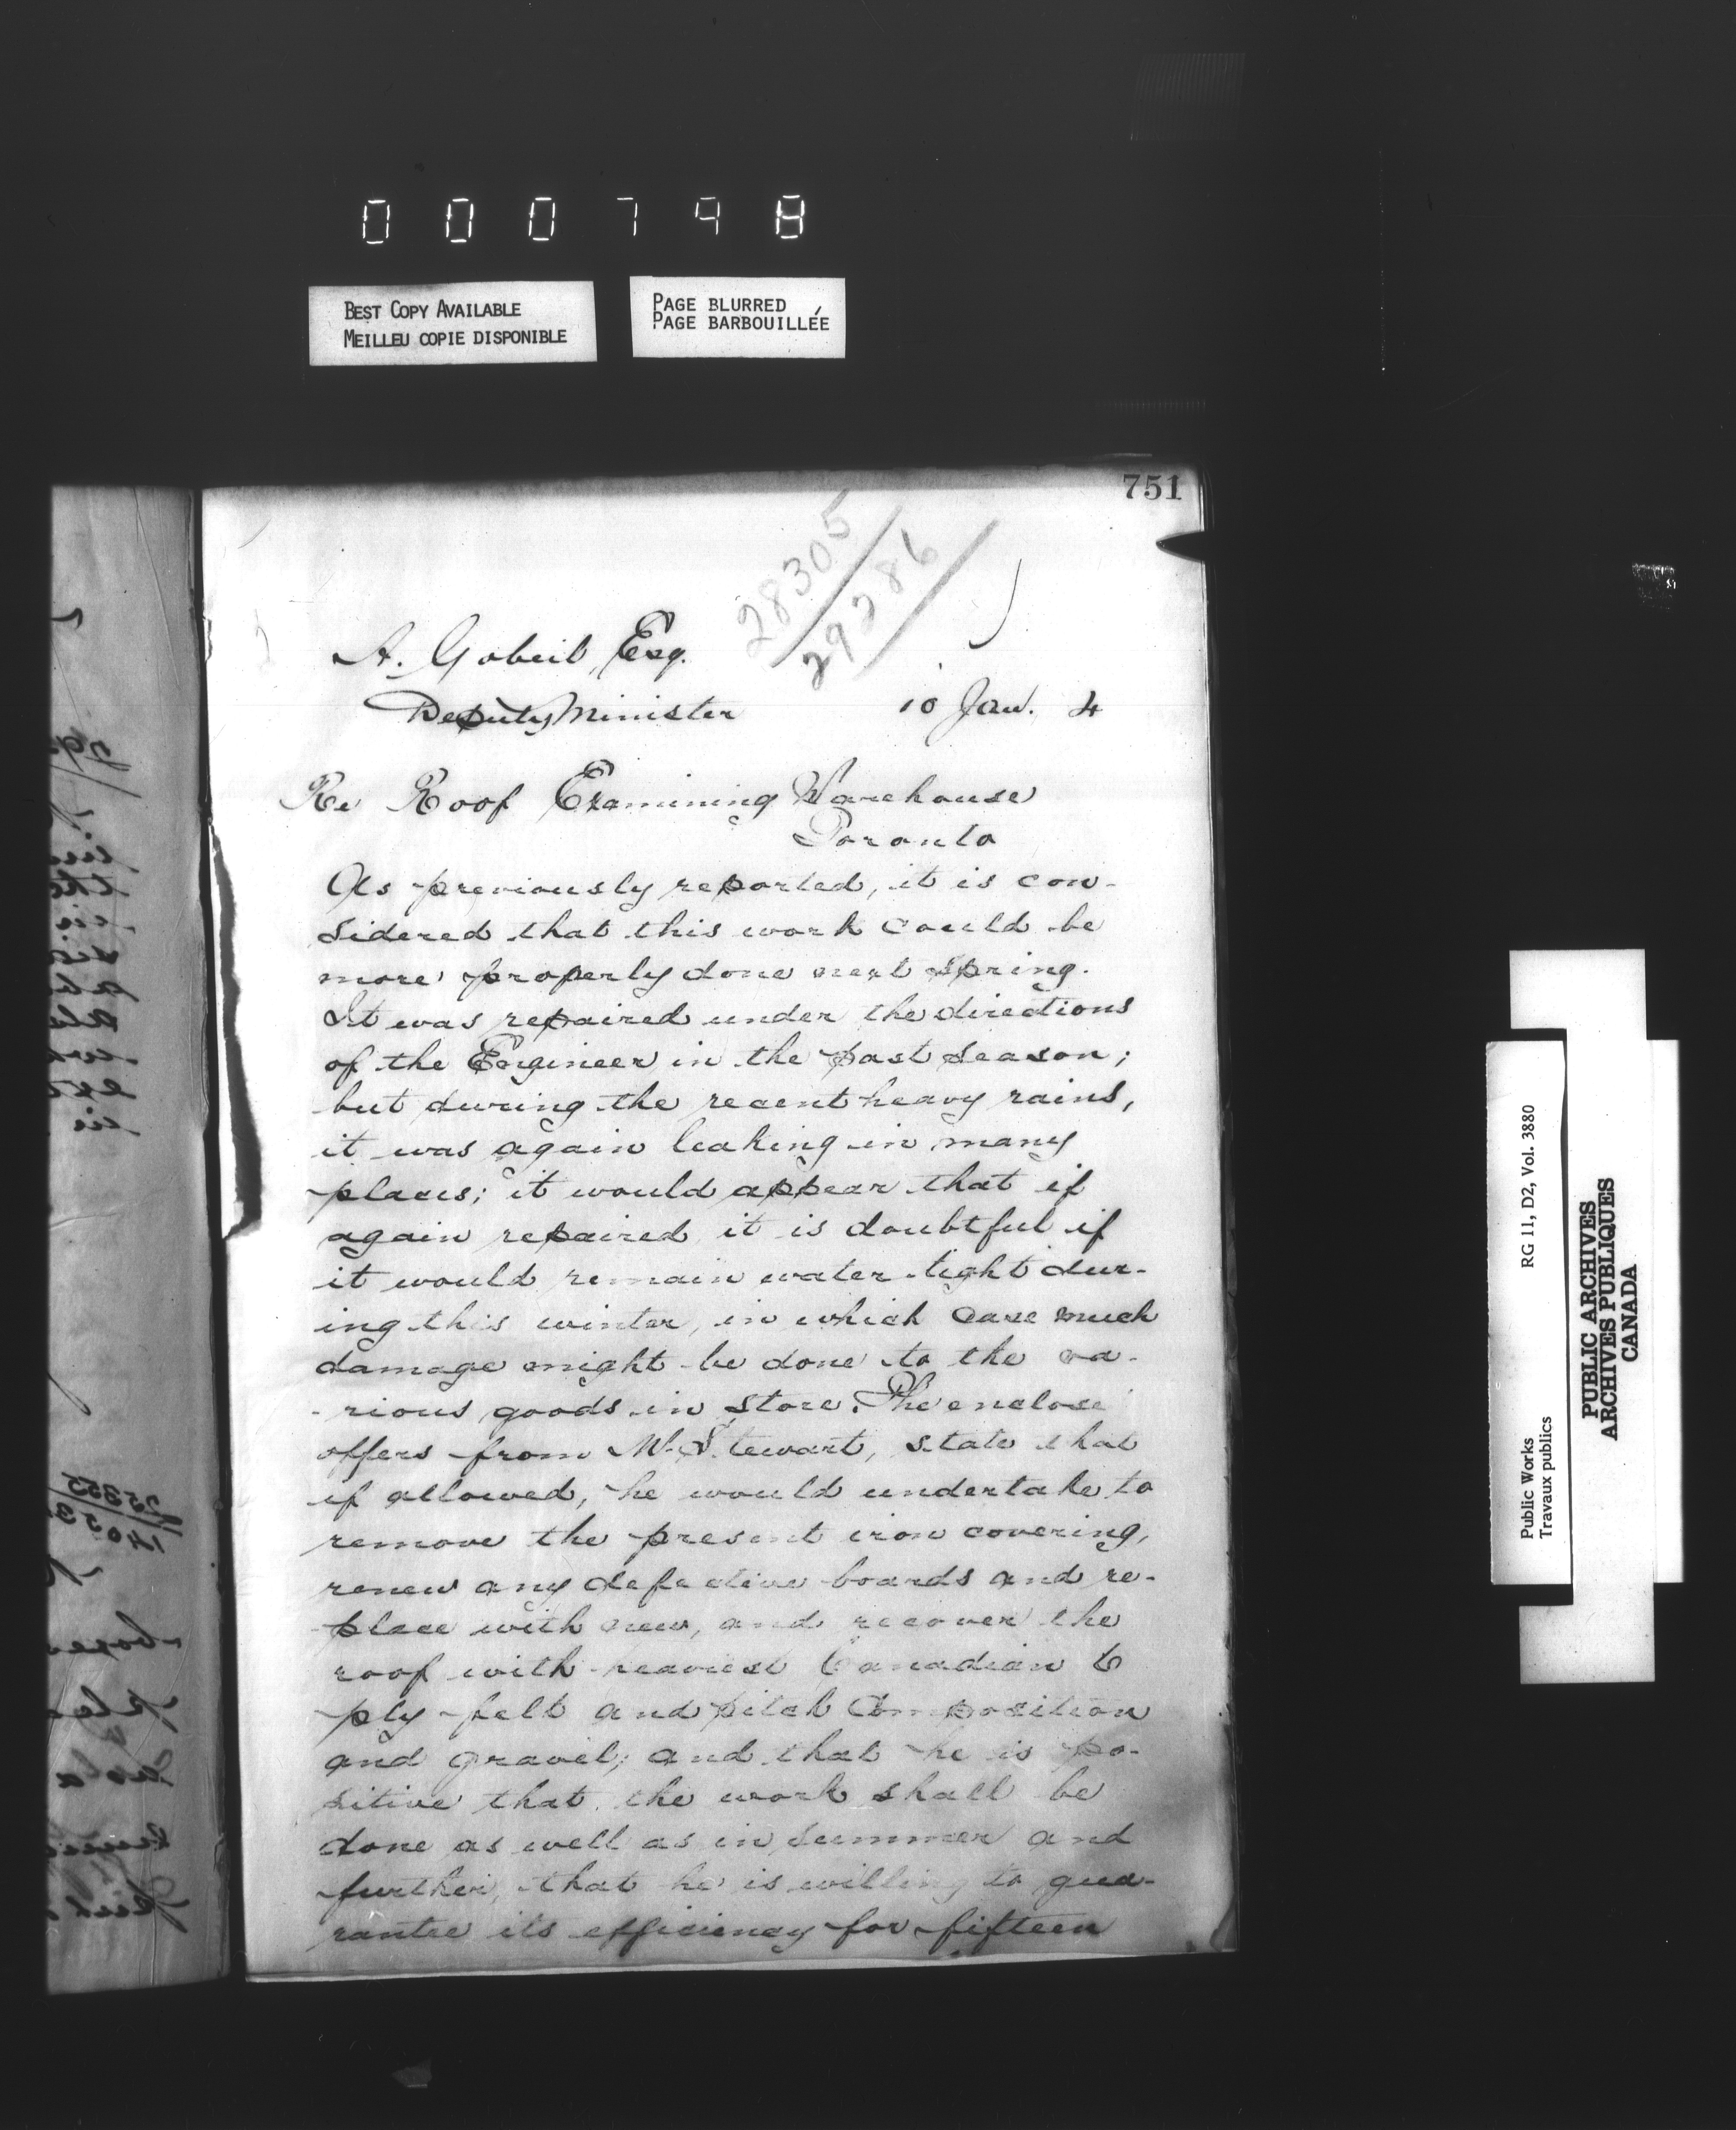 000798
BEST COPY AVAILABLE
MEILLEU COPIE DISPONIBLE
PAGE BLURRED
PAGE BARBOUILLÉE
751
28305
29286
A. Gobeil, Esq.
Deputy Minister 10 Jan. 4
Re Roof Examining Warehouse
Toronto
As previously reported, it is con-
sidered that this work could be
more properly done next spring.
It was repaired under the directions
of the Engineer in the past season;
but during the recent heavy rains,
it was again leaking in many
places; it would appear that if
again repaired it is doubtful if
it would remain water-tight dur-
ing this winter, in which case much
damage might be done to the va-
-rious goods in store. The enclose
offers from Mr. Stewart, state that
if allowed, he would undertake to
remove the present iron covering,
renew any defective boards and re-
place with new, and recover the
roof with heaviest Canadian 6
ply felt and pitch Composition
and gravel; and that he is po-
sitive that the work shall be
done as well as in summer and
further, that he is willing to gua-
rantee its efficiency for fifteen
Public Works
Travaux publics
RG 11, D2, Vol. 3880
PUBLIC ARCHIVES
ARCHIVES PUBLIQUES
CANADA